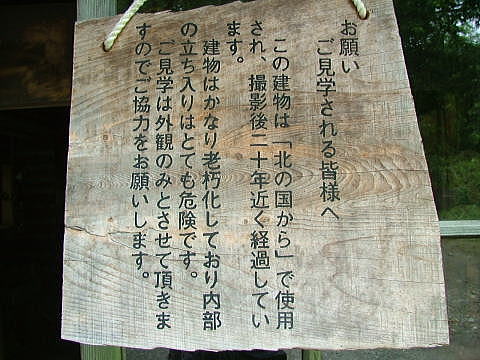 お願い
ご見学される皆様へ
この建物は「北の国から」で使用
され、撮影後二十年近く経過してい
ます。
建物はかなり老朽化しており内部
の立ち入りはとても危険です。
ご見学は外観のみとさせて頂きま
すのでご協力をお願いします。